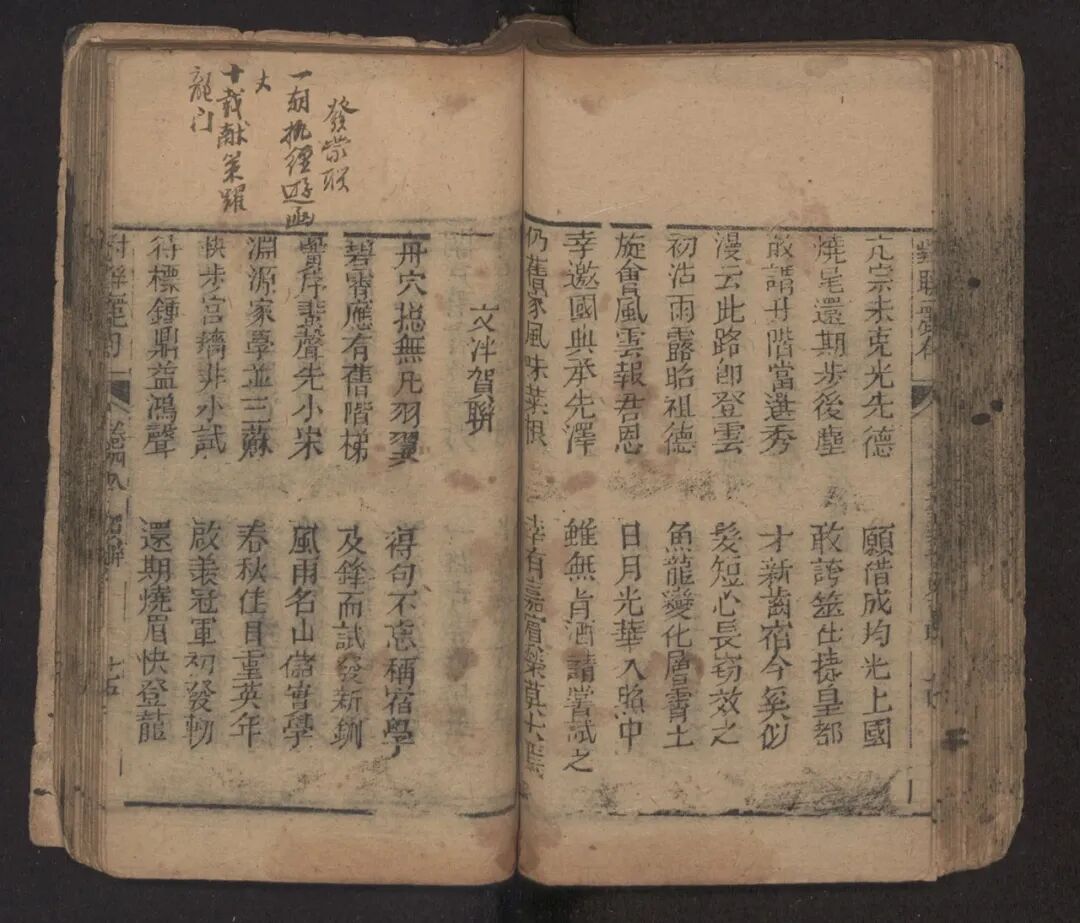 亢宗未克光先德
願借成均光上國
燒尾還期步後塵
敢誇筮仕捷皇都
敢謂丹階當選秀
才新齒宿今奚似
漫云此路卽登雲
髮短心長窃效之
初沾雨露昭祖德
魚龍變化層霄上
旋會風雲報君恩
日月光華入照中
幸邀國典承先澤
雖無肯酒請嘗試之
仍舊家風味菜根
幸有嘉賓
發蒙聯
一朝执經遊
丈
十载献策躍
龍门
文泮賀聯
丹穴摠無凡羽翼
得句不忘稱宿學
碧霄應有舊階梯
及鋒而試發新釧
聲先小宋
風雨名山儲實學
淵源家學並三蘇
春秋佳目重英年
快步宮牆非小試
啟羨冠軍初發軔
待標鍾鼎益鴻聲
還期燒眉快登龍